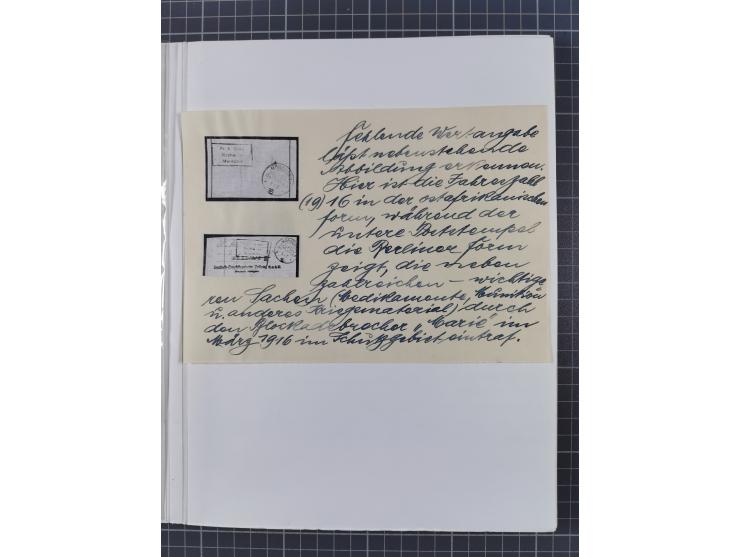 Fehlende Wertangabe
läßt nebenstehende
Abbildung erkennen.
Hier ist die Jahreszahl
(19) 16 in der ostafrikanischen
form, während der
untere Poststempel
die Berliner Form
zeigt, die neben
zahlreichen – wichtige
ren Sachen (Medikamente, Munition
u. anderes Kriegsmaterial) durch
den Blockadebrecher „Marie" im
März 1916 im Schutzgebiet eintraf.